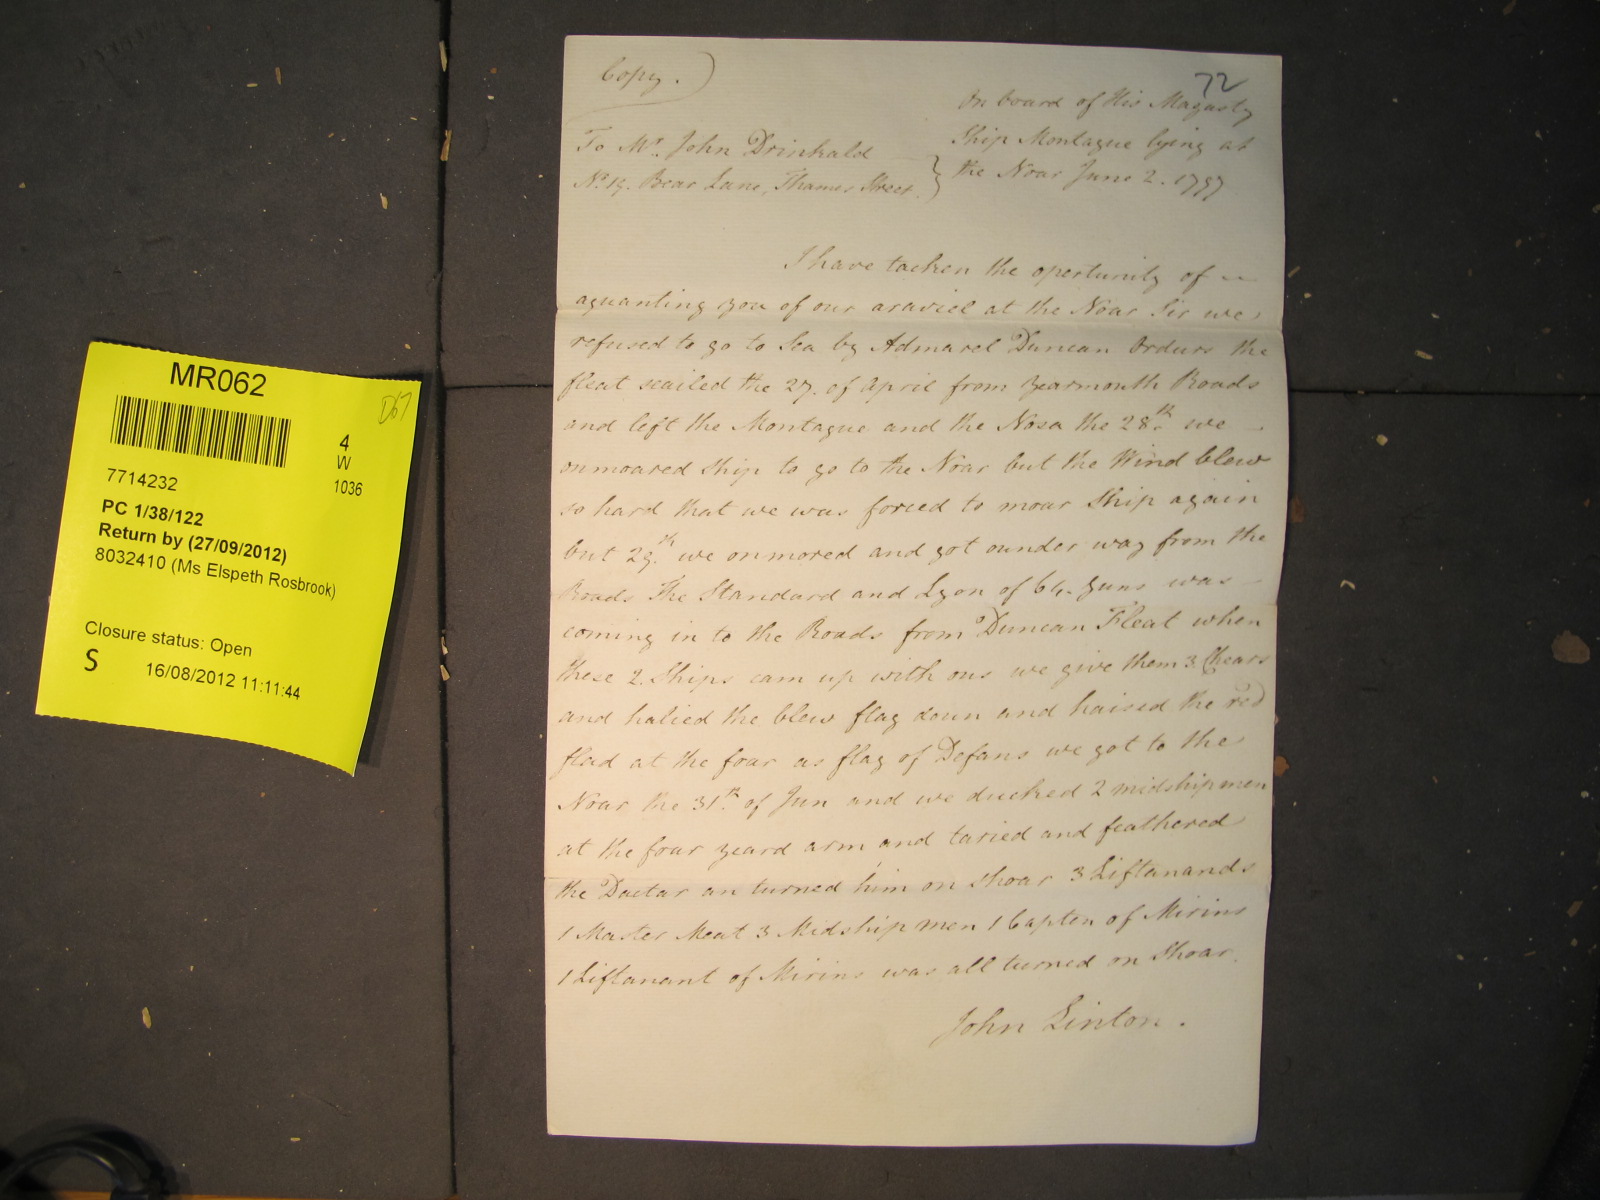 MR062
D67
4
W
1036
7714232
PC 1/38/122
Return by (27/09/2012)
8032410 (Ms Elspeth Rosbrook)
Closure status: Open
S
16/08/2012 11:11:44
Copy.
72
On board of His Magasty
Ship Montague lying at
the Noar June 2. 1797
To Mr. John Drinkald
No. 19. Bear Lane, Thames Street.
I have tacken the opertunity of
aquanting you of our araviel at the Noar Sir we
refused to go to Sea by Admarel Duncan Orders the
fleat seailed the 27. of April from Yearmouth Roads
and left the Montague and the Nosa the 28th. we
onmoared Ship to go to the Noar but the Wind blew
so hard that we was forced to moar Ship again
but 29th. we onmored and got ounder way from the
Roads The Standard and Lyon of 64. Guns was
coming in to the Roads from Duncan Fleat when
these 2 Ships cam up with ous we give them 3 Chears
and halied the blew flag down and haised the red
flad at the four as flag of Defans we got to the
Noar the 31th. of Jun and we ducked 2 midshipmen
at the four yeard arm and taried and feathered
the Doctar an turned him on shoar 3 Liftanands
1 Master Meat 3 Midshipmen 1 Capten of Mirins
1 Liftanant of Mirins was all turned on Shoar.
John Linton.